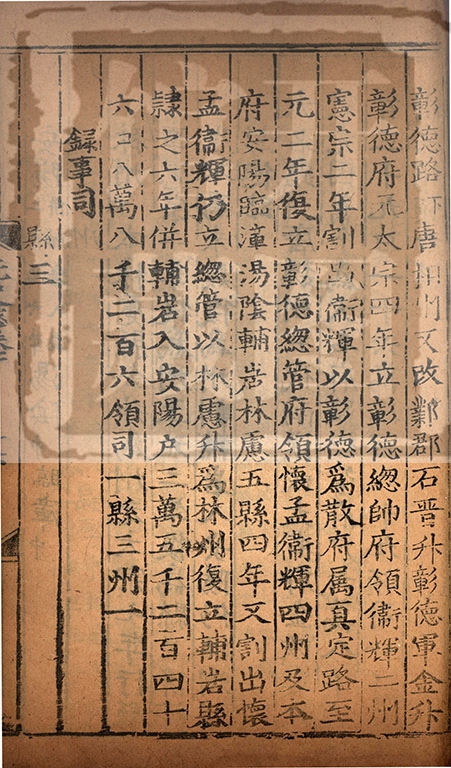 彰德路下唐相州又改鄴郡石晉升彰德軍金升
彰德府元太宗四年立彰德總帥府領衞輝二州
憲宗二年割出衞輝以彰德爲散府属真定路至
元二年復立彰德緫管府領懷孟衞輝四州及本
府安陽臨漳湯陰輔岩林慮五縣四年又割出懷
孟衞輝仍立緫管以林慮升爲林州復立輔岩縣
隷之六年併輔岩入安陽户三萬五千二百四十
六口八萬八千二百六領司一縣三州一
録事司
縣三